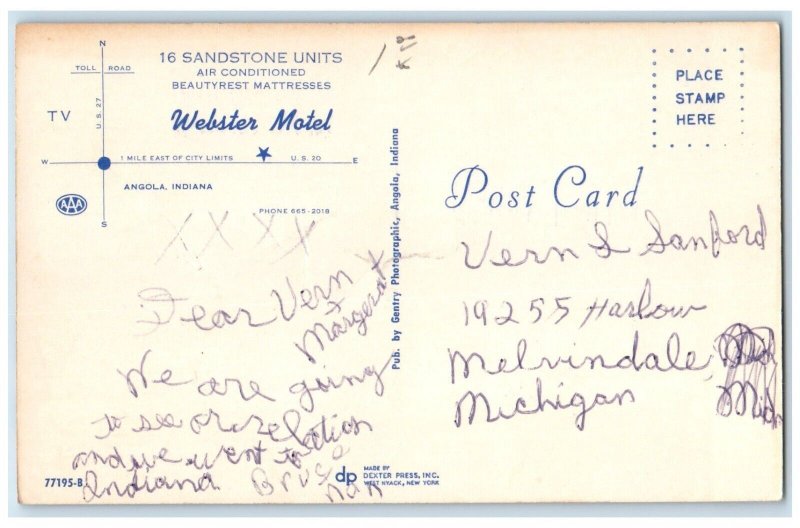 16 SANDSTONE UNITS
AIR CONDITIONED
BEAUTYREST MATTRESSES
Webster Motel
N
TOLL ROAD
U.S. 27
TV
W 1 MILE EAST OF CITY LIMITS U.S. 20 E
ANGOLA, INDIANA
AAA
S
PHONE 665-2018
XXXX
Dear Vern
+ Margeret
We are going
to see or relation
and we went to
Indiana. Bruse
nan
77195-B
dp MADE BY
DEXTER PRESS, INC.
WEST NYACK, NEW YORK
Pub. by Gentry Photographic, Angola, Indiana
PLACE
STAMP
HERE
Post Card
Vern L Sanford
19255 Harlow
Melvindale,
Michigan Mich